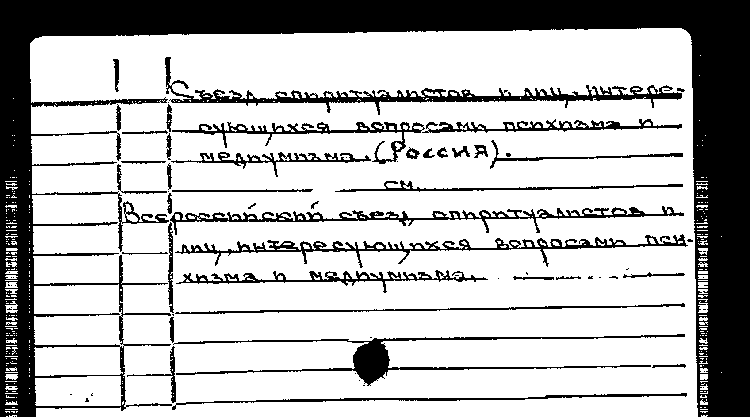 Съезд спиритуалистов и лиц, интере-
сующихся вопросами психизма и
медиумизма. (Россия).
см.
Всероссийский съезд спиритуалистов и
лиц, интересующихся вопросами пси-
хизма и медиумизма.